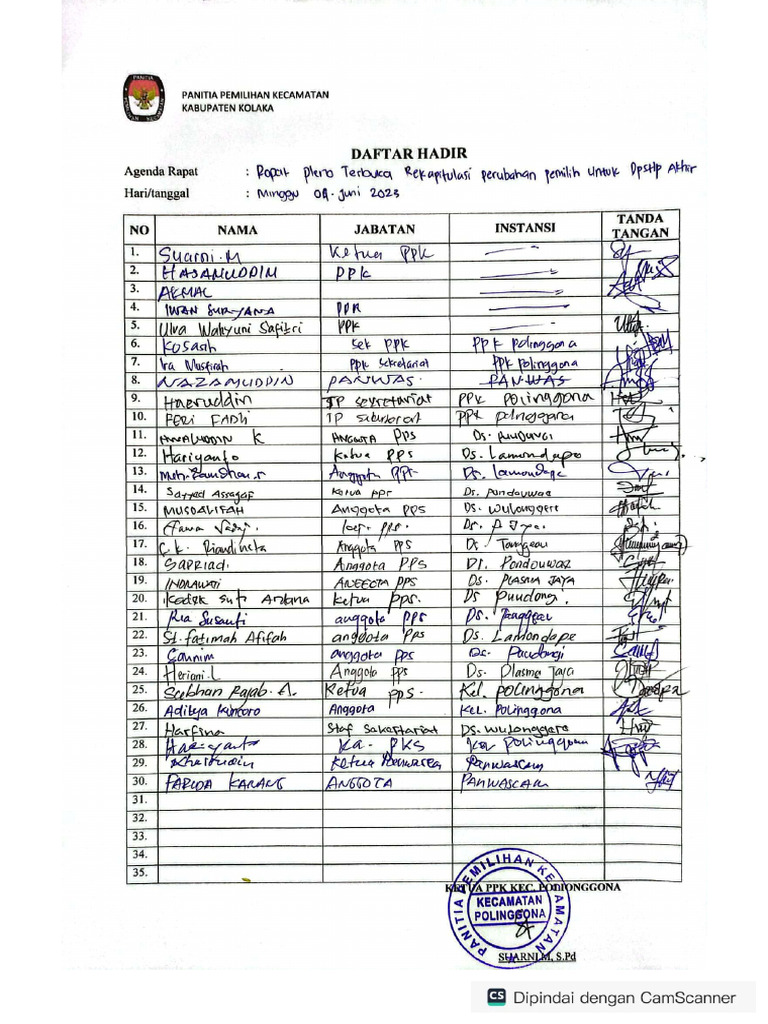 PANITIA PEMILIHAN KECAMATAN
KABUPATEN KOLAKA
DAFTAR HADIR
Agenda Rapat : Rapat Pleno Terbuka Rekapitulasi perubahan pemilih untuk Dpshp Akhir
Hari/tanggal : Minggu 04. Juni 2023
NO NAMA JABATAN INSTANSI TANDA TANGAN
1. Suarni.M Ketua PPK
2. HASANUDDIN PPK
3. AKMAL
4. IWAN SURYANA PPK
5. Ulva Wahyuni Safitri PPK
6. Kosasih Sek PPK PPK Polinggona
7. Ira Musfirah PPK Sekretariat PPK Polinggona
8. NAZAMUDDIN PANWAS. PANWAS
9. Haeruddin TP Sekretariat PPK Polinggona
10. FERI FADLI TP PPK Polinggona
11. K ANGGOTA PPS Ds. PUUDONGI
12. Hariyanto Ketua PPS Ds. Lamondape
13. Anggota PPS Ds. Lamondape
14. Sayyad Assagaf Ketua PPS Ds. Pondouwae
15. MUSDALIFAH Anggota PPS Ds. Wulonggere
16.
17. C.K. Riandineta Anggota PPS Ds. Tanggeau
18. SAPRIADI Anggota PPS Ds. Pondouwae
19. INDRAWATI ANGGOTA PPS Ds. PLASMA JAYA
20. Kadek Suti Ardana Ketua PPS. Ds Puudongi.
21. Ria Susanti anggota PPS Ds. Tanggeau
22. St. Fatimah Afifah anggota PPS Ds. Lamondape
23. anggota PPS Ds. Puudongi
24. Heriani.L Anggota PPS Ds. Plasma Jaya
25. Subhan Rajab. A. Ketua PPS. Kel. Polinggona
26. Aditya Kuncoro Anggota Kel. Polinggona
27. Harfina Staf Sekertariat DS. Wulonggere
28. Hariyanto Ka. PKS Polinggona
29. Khairudin Ketua Panwascam
30. FARIDA KARANG ANGGOTA PANWASCAM
31.
32.
33.
34.
35.
KETUA PPK KEC. POLINGGONA
PANITIA PEMILIHAN KECAMATAN
KECAMATAN
POLINGGONA
SUARNI.M, S.Pd
CS Dipindai dengan CamScanner